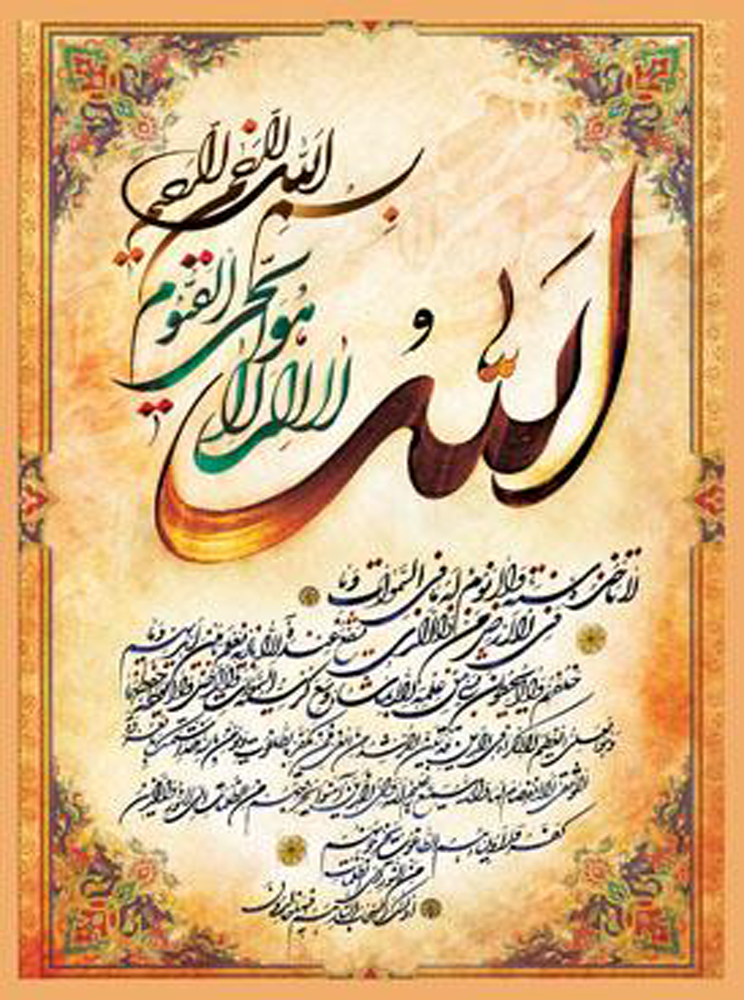 بسم الله الرحمن الرحیم
اللهُ
لا اله الا هو الحی القیوم
لا تأخذه سنة ولا نوم له ما فی السموات وما
فی الارض من ذا الذی یشفع عنده الا باذنه یعلم ما بین ایدیهم وما
خلفهم ولا یحیطون بشیء من علمه الا بما شاء وسع کرسیه السموات والارض ولا یؤده حفظهما
وهو العلی العظیم لا اکراه فی الدین قد تبین الرشد من الغی فمن یکفر بالطاغوت ویؤمن بالله فقد استمسک بالعروة
الوثقی لا انفصام لها والله سمیع علیم الله ولی الذین آمنوا یخرجهم من الظلمات الی النور والذین
کفروا اولیاؤهم الطاغوت یخرجونهم
من النور الی الظلمات
اولئک اصحاب النار هم فیها خالدون